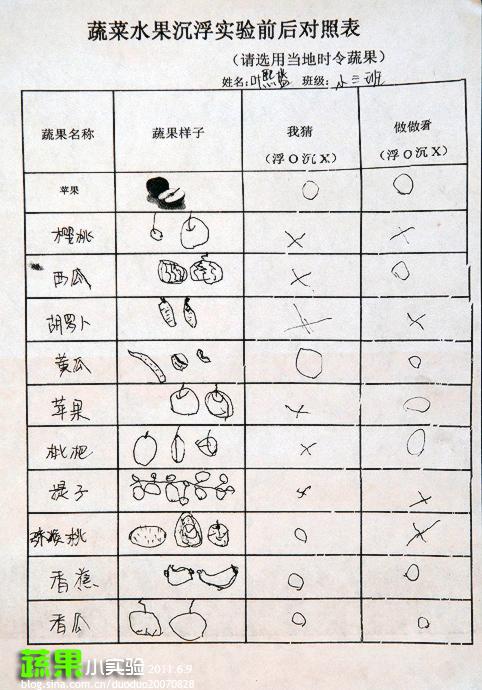 蔬菜水果沉浮实验前后对照表
(请选用当地时令蔬果)
姓名:叶熙 班级:小三班
蔬果名称 蔬果样子 我猜 (浮O沉X) 做做看 (浮O沉X)
苹果 O O
樱桃 X X
西瓜 X O
胡萝卜 X X
黄瓜 O O
苹果 X O
枇杷 X O
提子 X X
猕猴桃 O X
香蕉 O O
香瓜 O O
蔬果小实验 2011.6.9
blog.sina.com.cn/duoduo20070828